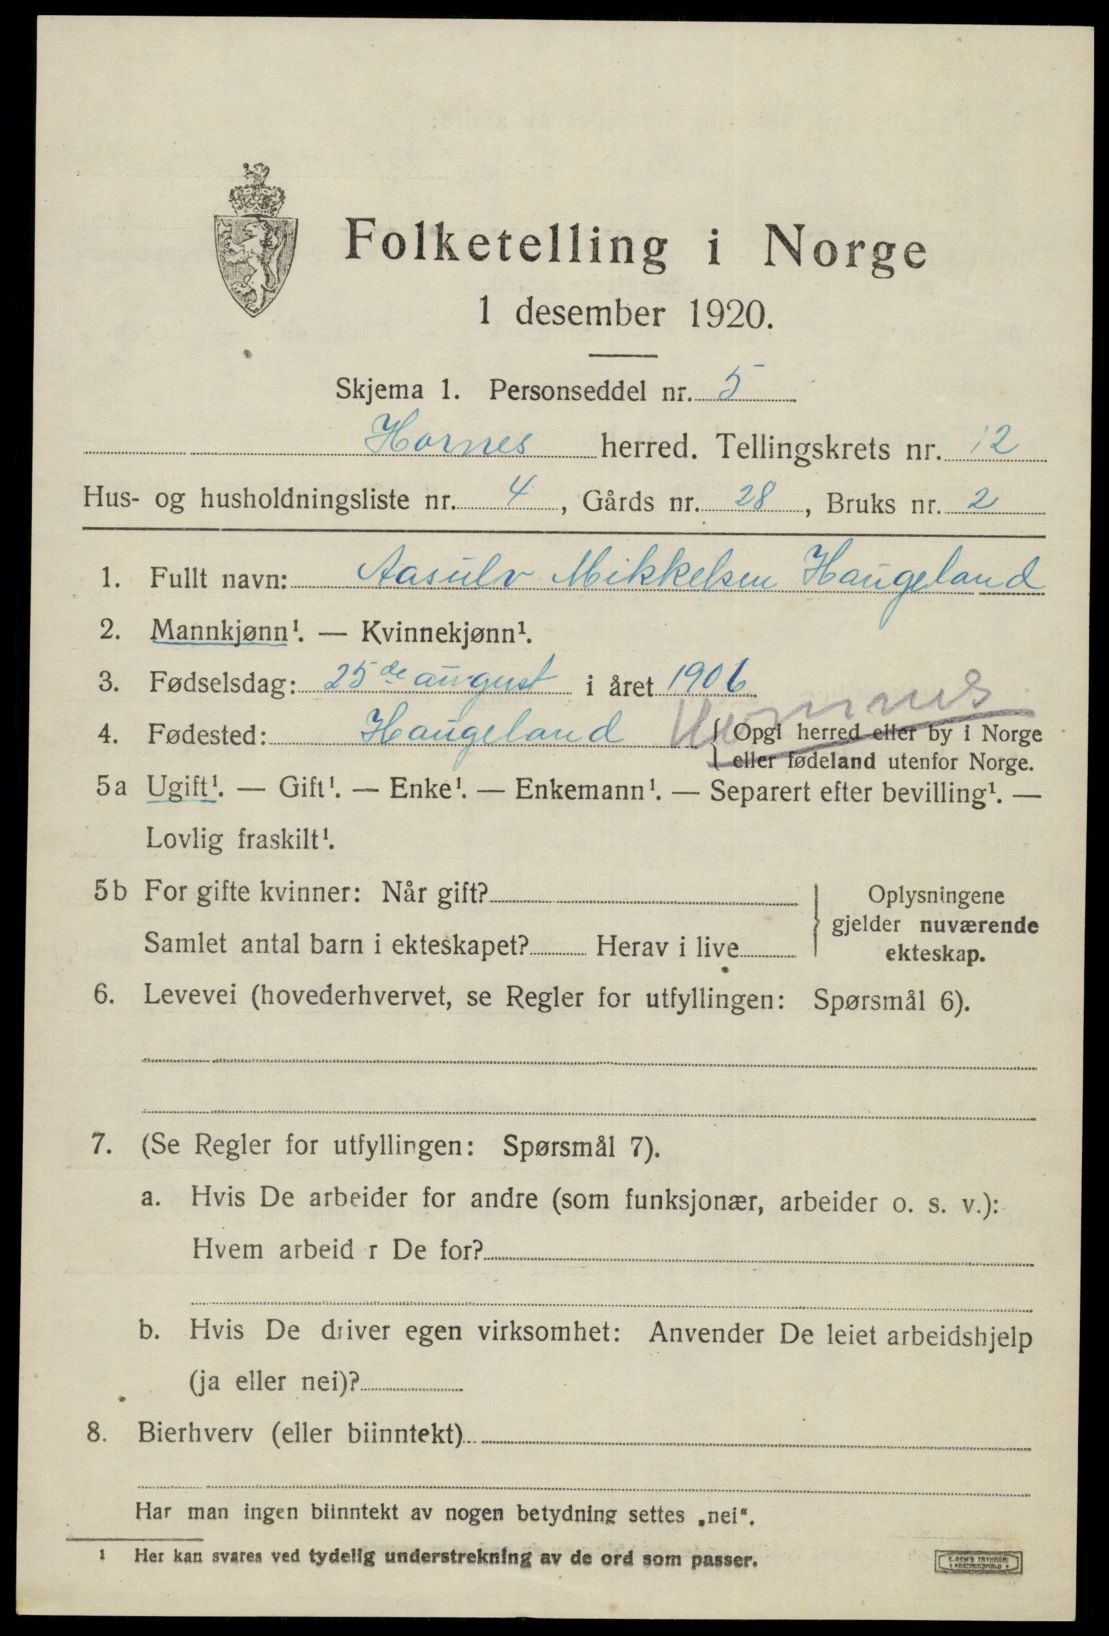 Folketelling i Norge
1 desember 1920.
Skjema 1. Personseddel nr. 5
Hornnes herred. Tellingskrets nr. 12
Hus- og husholdningsliste nr. 4, Gårds nr. 28, Bruks nr. 2
1. Fullt navn: Aasulv Mikkelsen Haugeland
2. Mannkjønn¹. — Kvinnekjønn¹.
3. Fødselsdag: 25de august i året 1906
4. Fødested: Haugeland Hornnes { Opgi herred eller by i Norge
eller fødeland utenfor Norge.
5a Ugift¹. — Gift¹. — Enke¹. — Enkemann¹. — Separert efter bevilling¹. —
Lovlig fraskilt¹.
5b For gifte kvinner: Når gift?
Samlet antal barn i ekteskapet? Herav i live
Oplysningene
gjelder nuværende
ekteskap.
6. Levevei (hovederhvervet, se Regler for utfyllingen: Spørsmål 6).
7. (Se Regler for utfyllingen: Spørsmål 7).
a. Hvis De arbeider for andre (som funksjonær, arbeider o. s. v.):
Hvem arbeid r De for?
b. Hvis De driver egen virksomhet: Anvender De leiet arbeidshjelp
(ja eller nei)?
8. Bierhverv (eller biinntekt)
Har man ingen biinntekt av nogen betydning settes „nei“.
1 Her kan svares ved tydelig understrekning av de ord som passer.